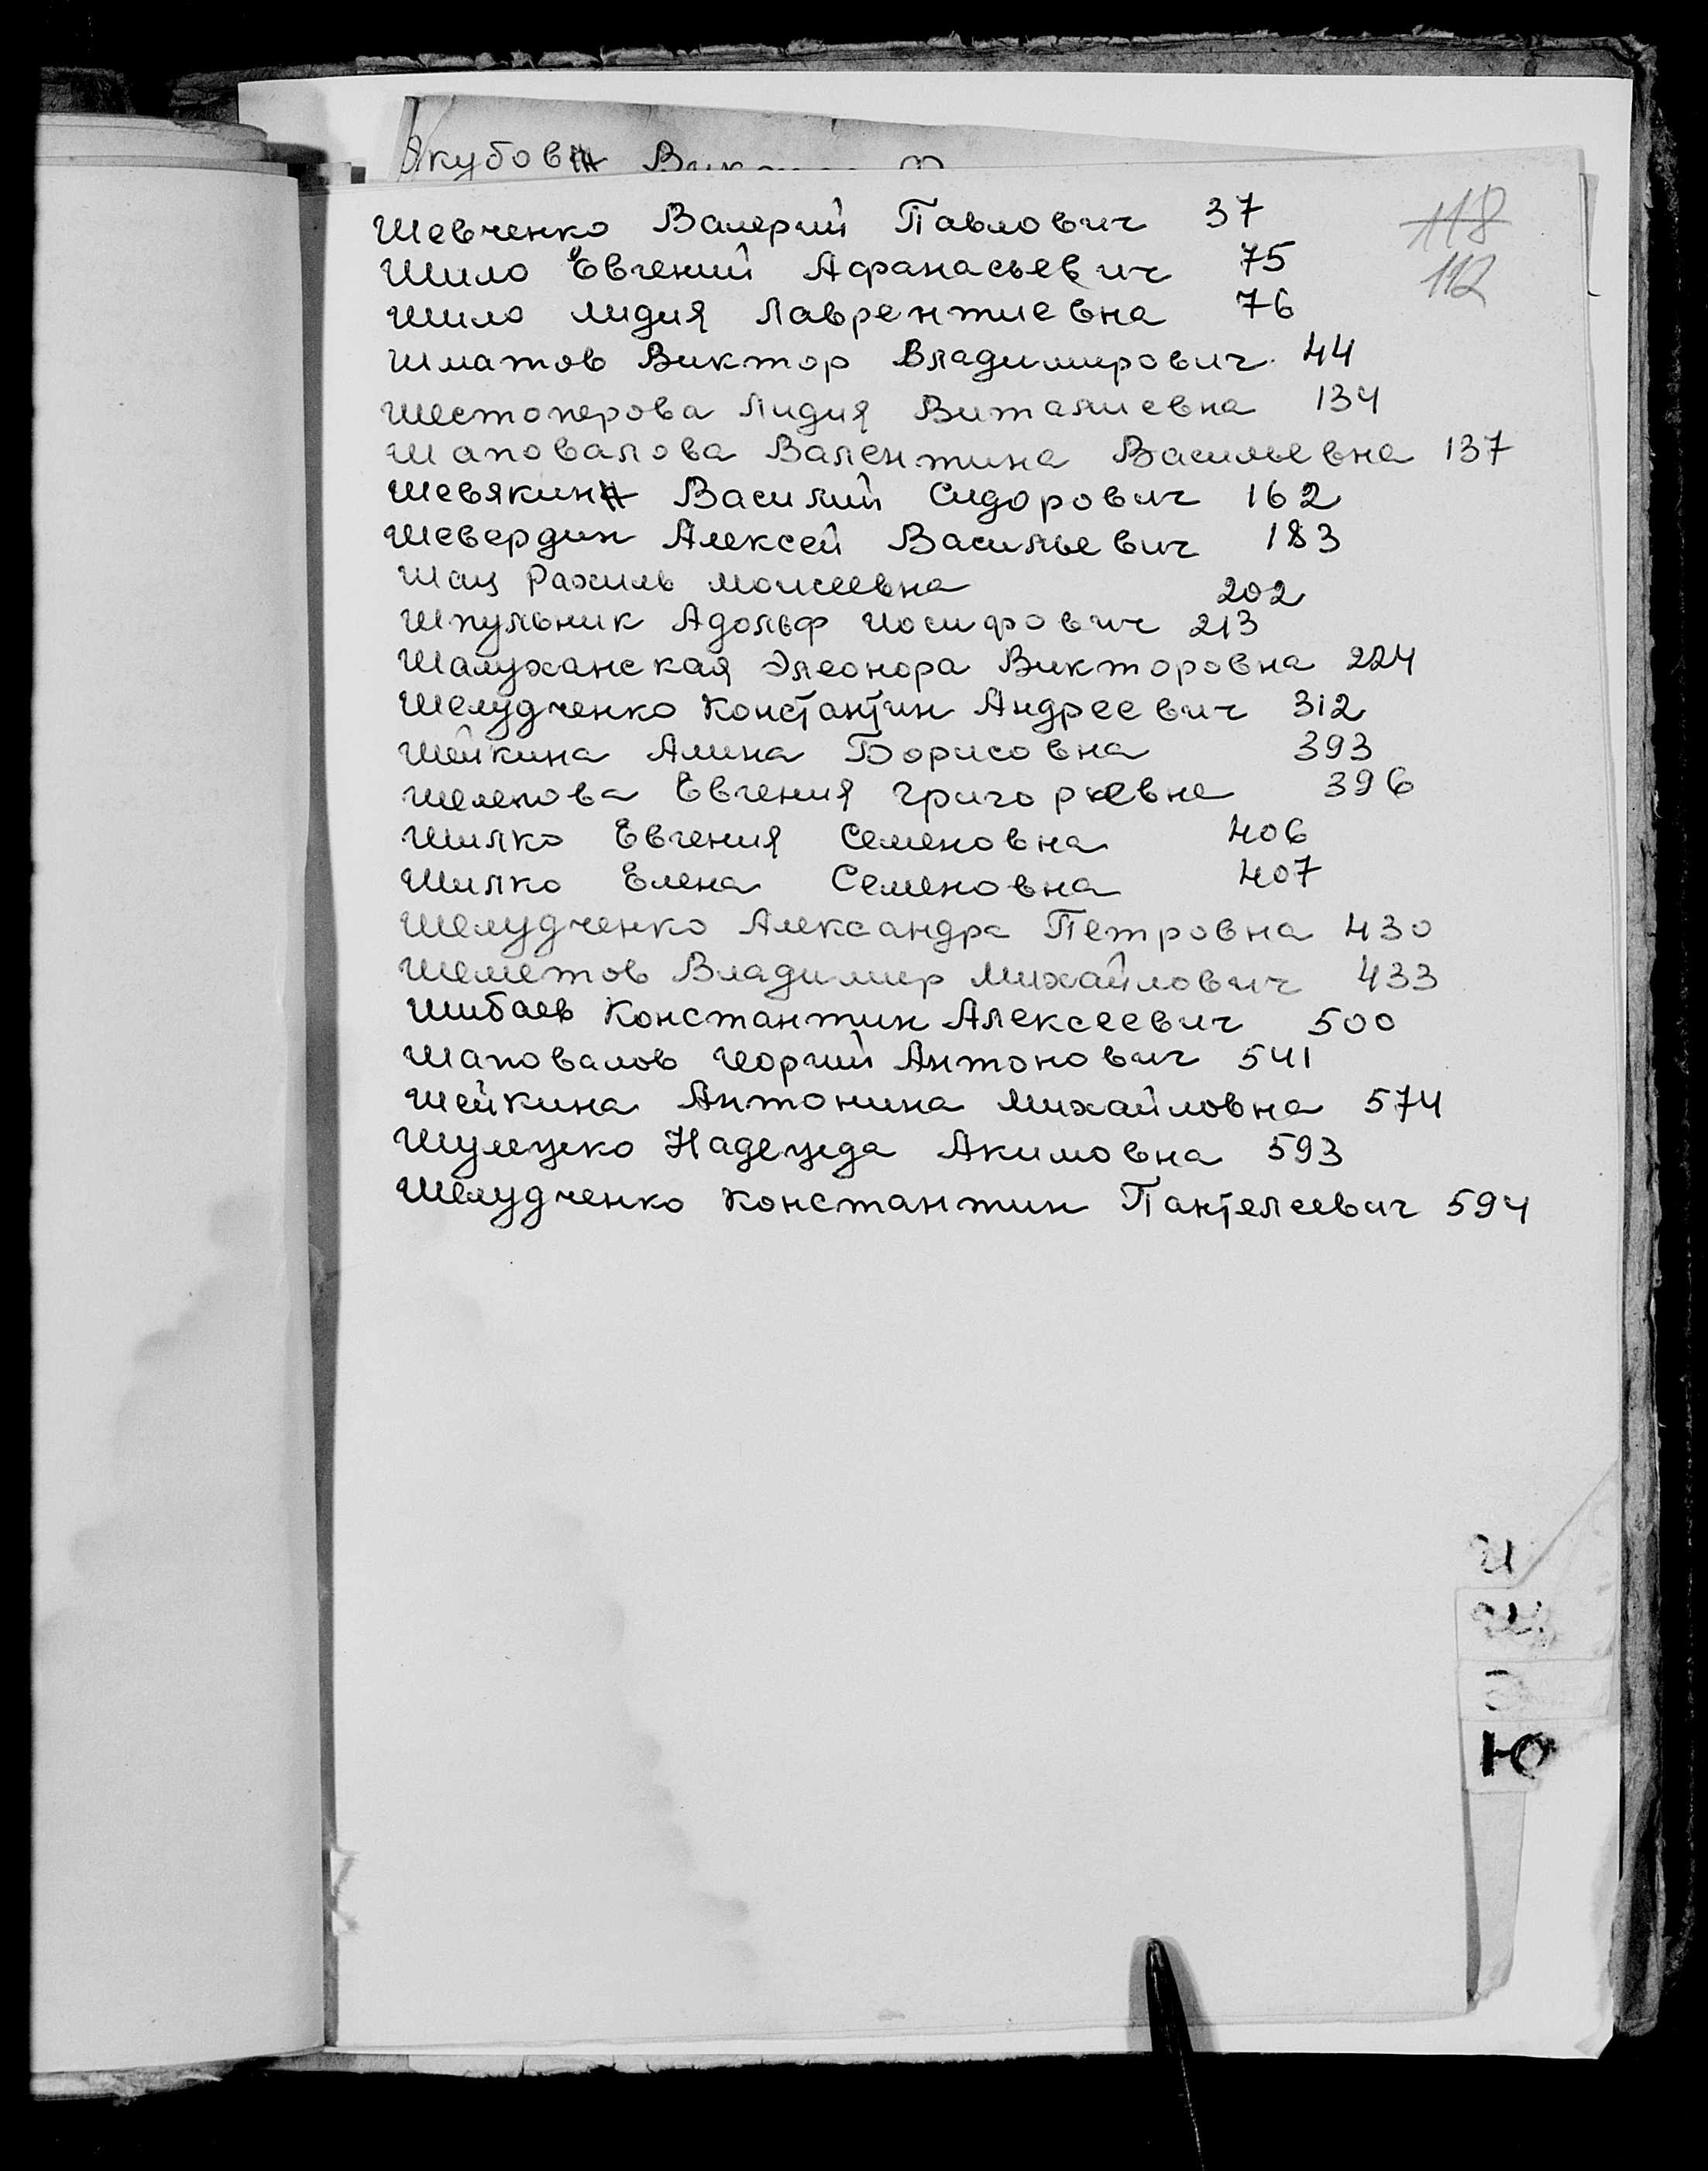 Якубов
118
112
Шевченко Валерий Павлович 37
Шило Евгений Афанасьевич 75
Шило Лидия Лаврентиевна 76
Шматов Виктор Владимирович 44
Шестоперова Лидия Виталиевна 134
Шаповалова Валентина Васильевна 137
Шевякин Василий Сидорович 162
Шевердин Алексей Васильевич 183
Шац Рахиль Моисеевна 202
Шпульник Адольф Иосифович 213
Шалуханская Элеонора Викторовна 224
Шелудченко Константин Андреевич 312
Шейкина Алина Борисовна 393
Шелепова Евгения Григорьевна 396
Шилко Евгения Семеновна 406
Шилко Елена Семеновна 407
Шелудченко Александра Петровна 430
Шеметов Владимир Михайлович 433
Шибаев Константин Алексеевич 500
Шаповалов Георгий Антонович 541
Шейкина Антонина Михайловна 574
Шулежко Надежда Акимовна 593
Шелудченко Константин Пантелеевич 594
Ю